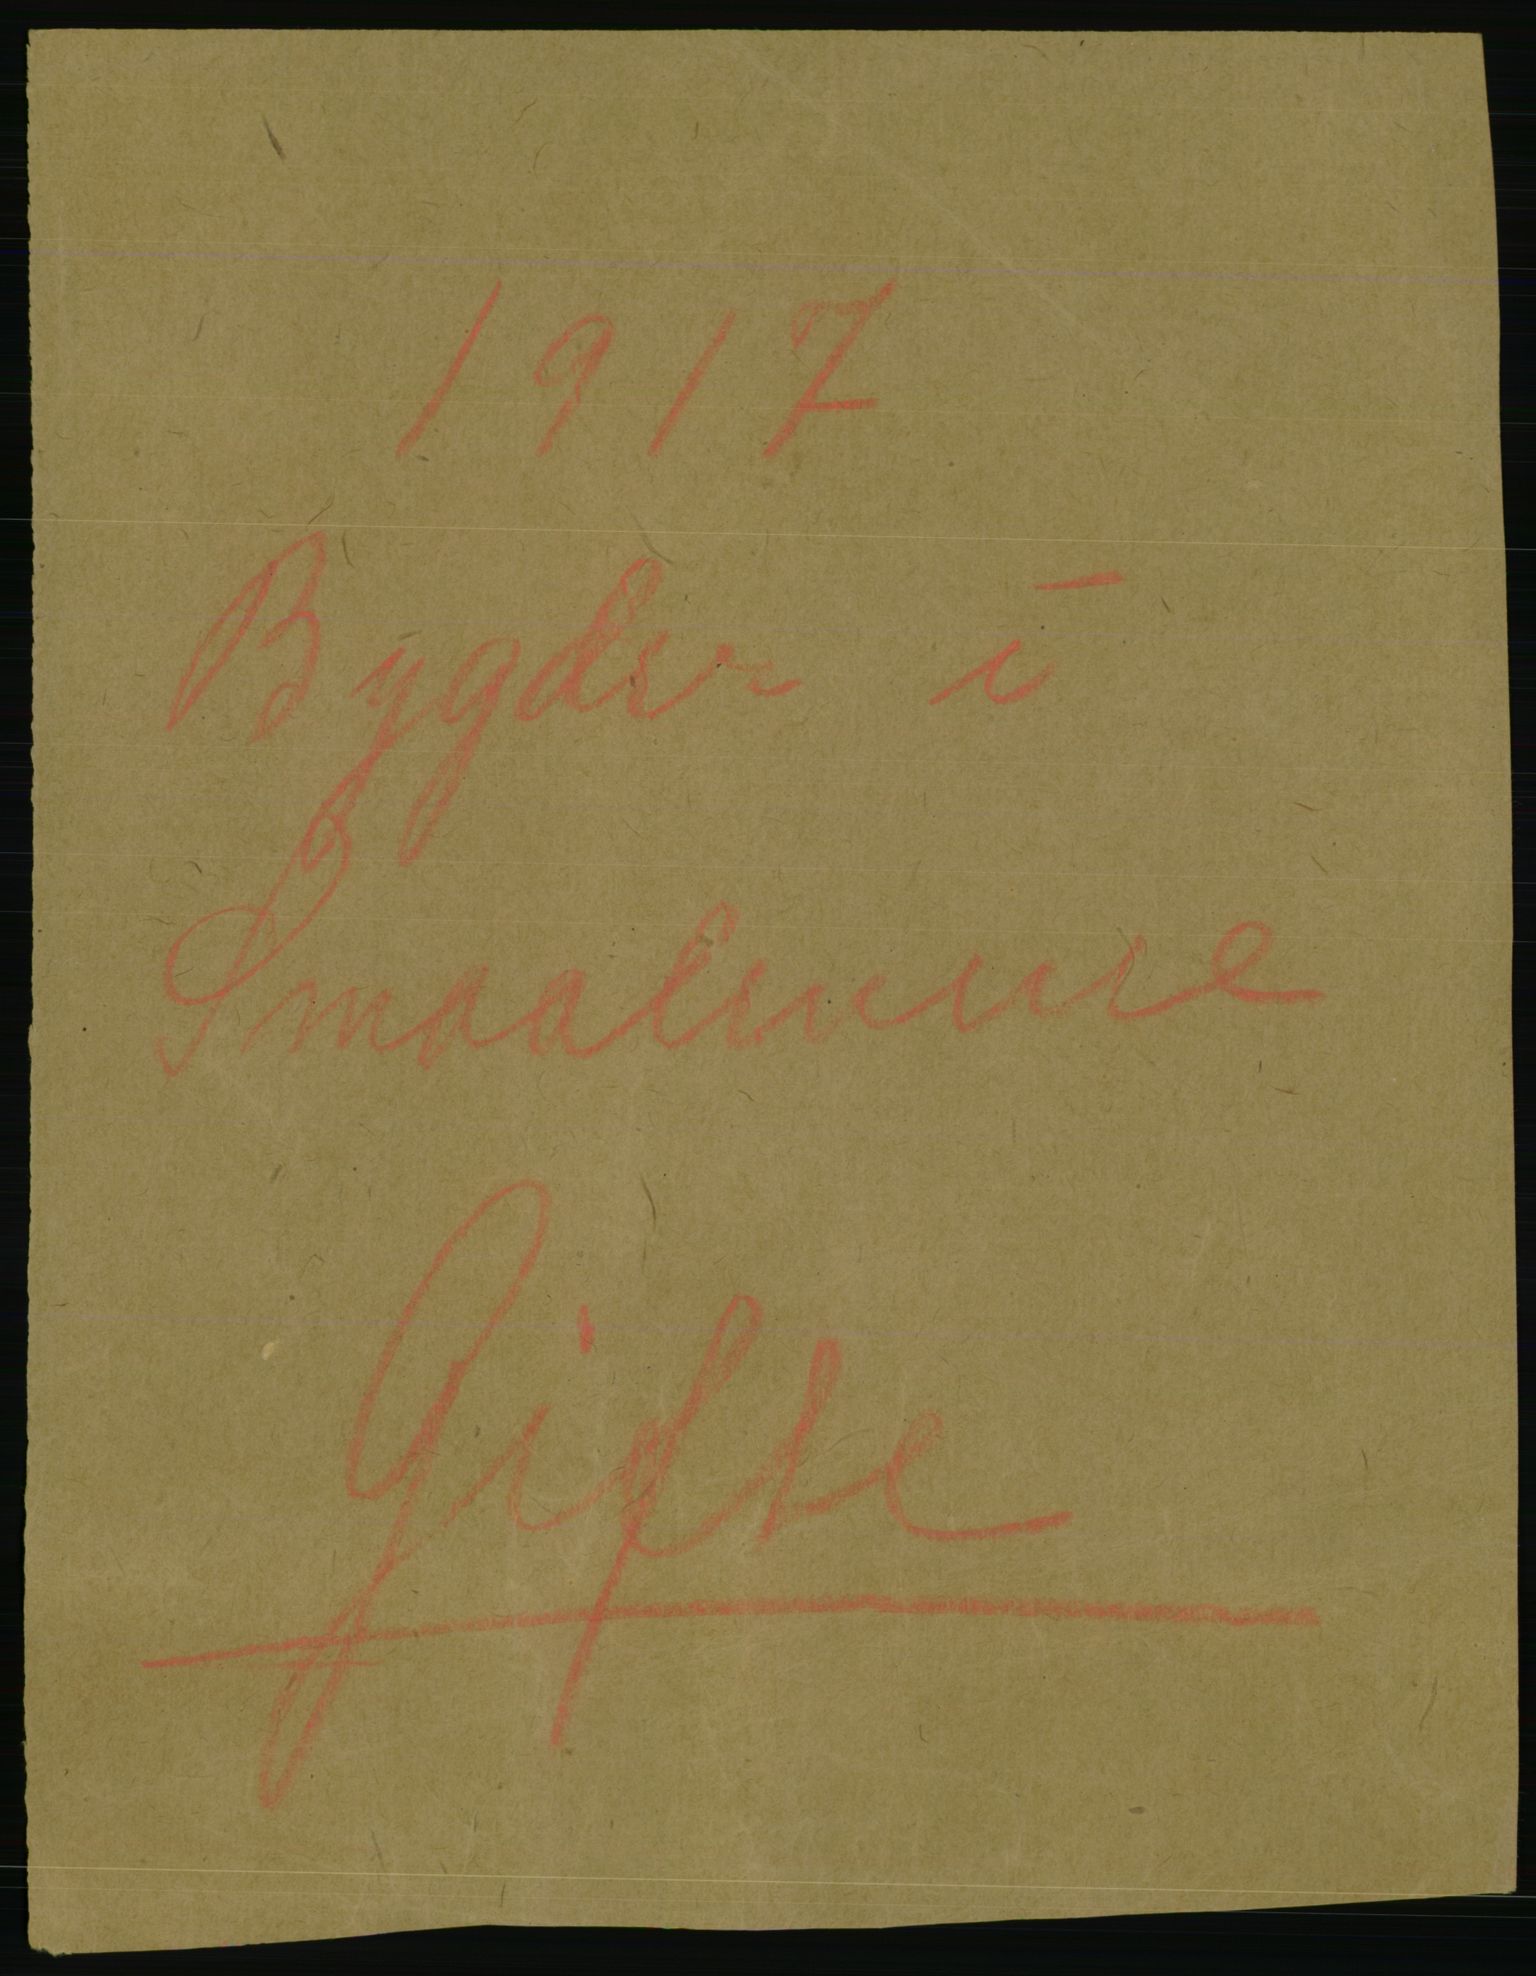 1917
Bygder i
Smaalenene
Gifte